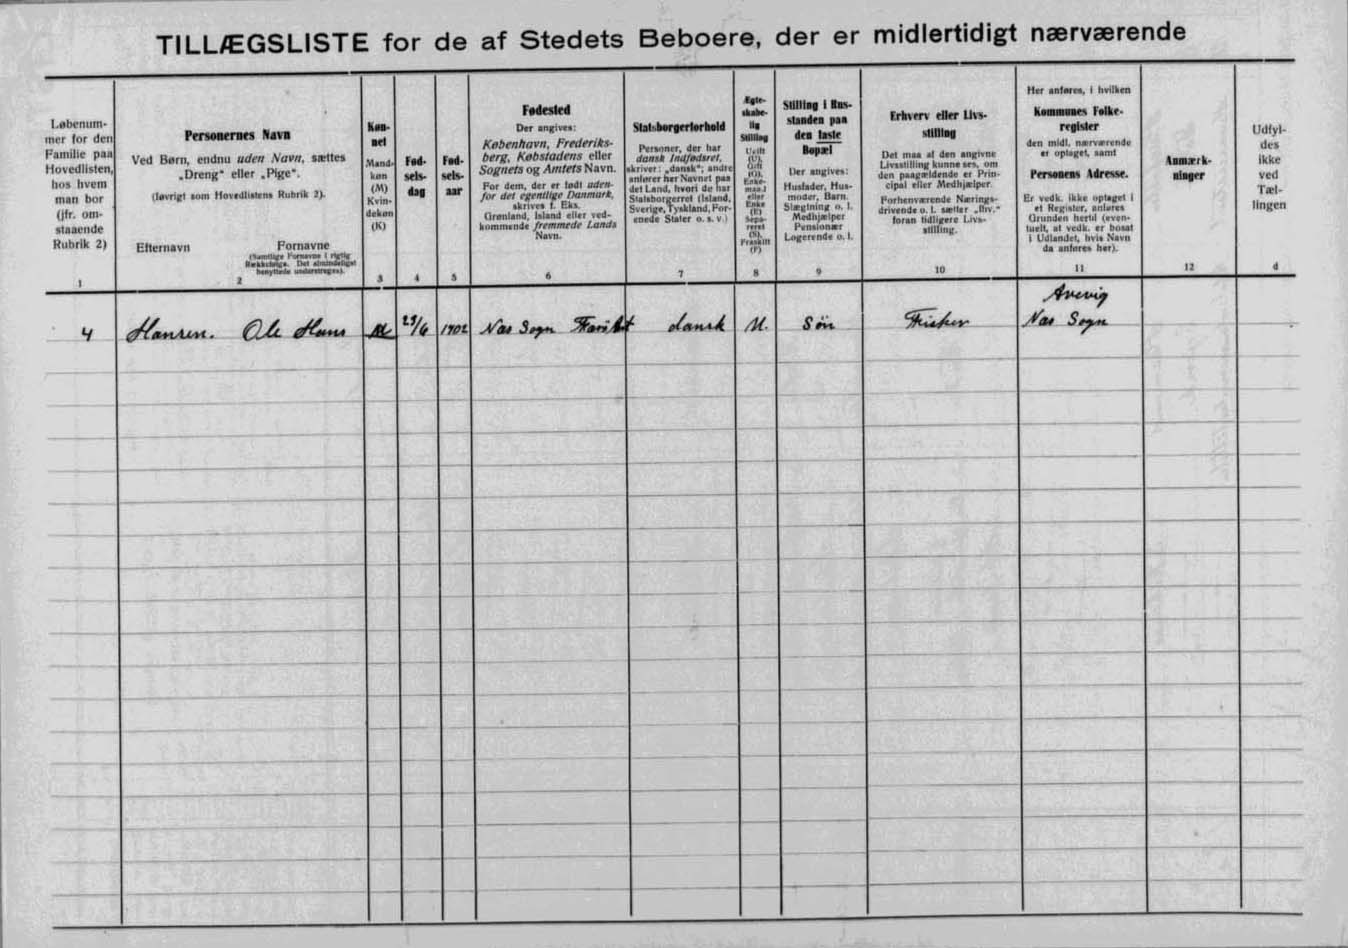 TILLÆGSLISTE for de af Stedets Beboere, der er midlertidigt nærværende
Løbenum-
mer for den
Familie paa
Hovedlisten,
hos hvem
man bor
(jfr. om-
staaende
Rubrik 2)
1
Personernes Navn
Ved Børn, endnu uden Navn, sættes
„Dreng“ eller „Pige“.
(Iøvrigt som Hovedlistens Rubrik 2).
Efternavn
Fornavne
(Samtlige Fornavne i rigtig
Rækkefølge. Det almindeligst
benyttede understreges).
2
Køn-
net
Mand-
køn
(M)
Kvin-
dekøn
(K)
3
Fød-
sels-
dag
4
Fød-
sels-
aar
5
Fødested
Der angives:
København, Frederiks-
berg, Købstadens eller
Sognets og Amtets Navn.
For dem, der er født uden-
for det egentlige Danmark,
skrives f. Eks.
Grønland, Island eller ved-
kommende fremmede Lands
Navn.
6
Statsborgerforhold
Personer, der har
dansk Indfødsret,
skriver: „dansk“; andre
anfører her Navnet paa
det Land, hvori de har
Statsborgerret (Island,
Sverige, Tyskland, For-
enede Stater o. s. v.)
7
Ægte-
skabe-
lig
Stilling
Ugift
(U),
Gift
(G),
Enke-
mand
eller
Enke
(E)
Sepa-
reret
(S),
Fraskilt
(F)
8
Stilling i Hus-
standen paa
den faste
Bopæl
Der angives:
Husfader, Hus-
moder, Barn,
Slægtning o. l.
Medhjælper
Pensionær
Logerende o. l.
9
Erhverv eller Livs-
stilling
Det maa af den angivne
Livsstilling kunne ses, om
den paagældende er Prin-
cipal eller Medhjælper.
Forhenværende Nærings-
drivende o. l. sætter „fhv.“
foran tidligere Livs-
stilling.
10
Her anføres, i hvilken
Kommunes Folke-
register
den midl. nærværende
er optaget, samt
Personens Adresse.
Er vedk. ikke optaget i
et Register, anføres
Grunden hertil (even-
tuelt, at vedk. er bosat
i Udlandet, hvis Navn
da anføres her).
11
Anmærk-
ninger
12
Udfyl-
des
ikke
ved
Tæl-
lingen
d
Arevig
4 Hansen. Ole Hans M 29/6 1902 Næs Sogn dansk U. Søn Fisker Næs Sogn